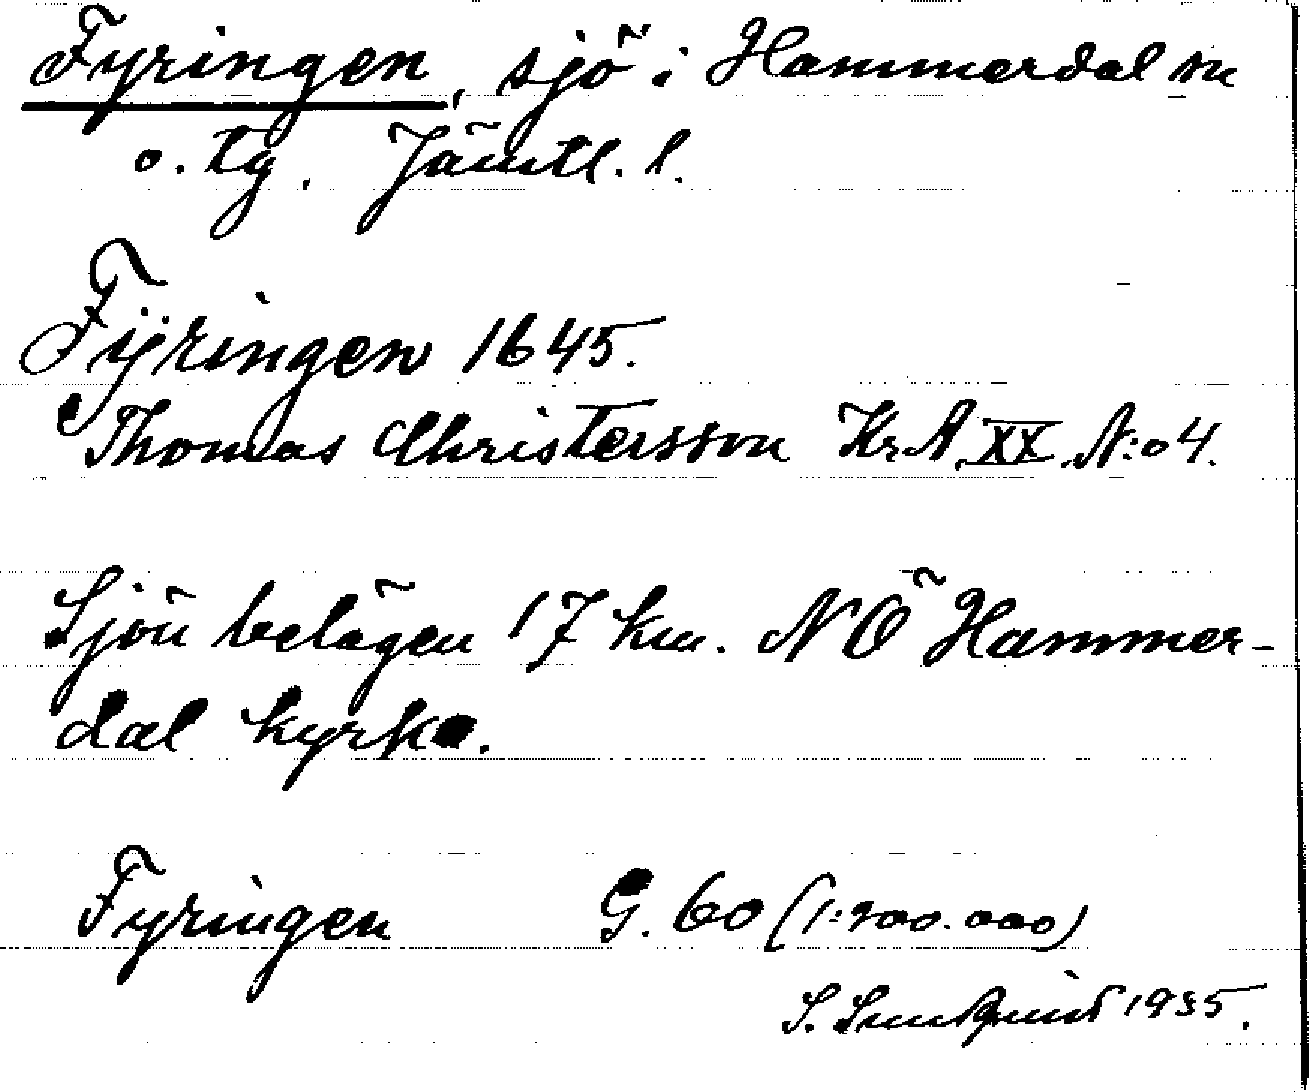 Fyringen, sjö i Hammerdal sn
o. tg. Jämtl. l.
Fÿringen 1645.
Thomas Christersson KrA XX N:o 4.
Sjön belägen 17 km. NÖ Hammer-
dal kyrka.
Fyringen G. 60 (1:200.000)
S. 1935.